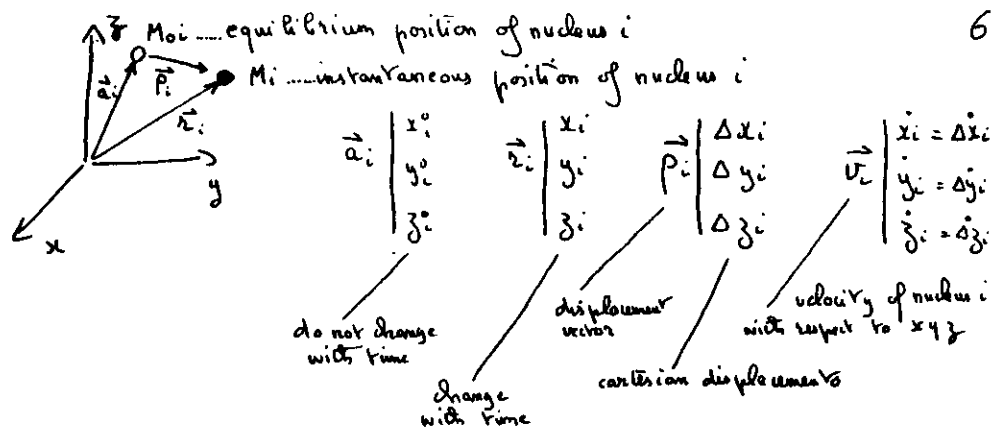 z M₀i ..... equilibrium position of nucleus i 6
Mi ..... instantaneous position of nucleus i
a⃗i ρ⃗i r⃗i
x y
a⃗i | xi° r⃗i | xi ρ⃗i | Δxi v⃗i | ẋi = Δẋi
yi° yi Δyi ẏi = Δẏi
zi° zi Δzi żi = Δżi
do not change
with time
change
with time
displacement
vector
cartesian displacements
velocity of nucleus i
with respect to x y z